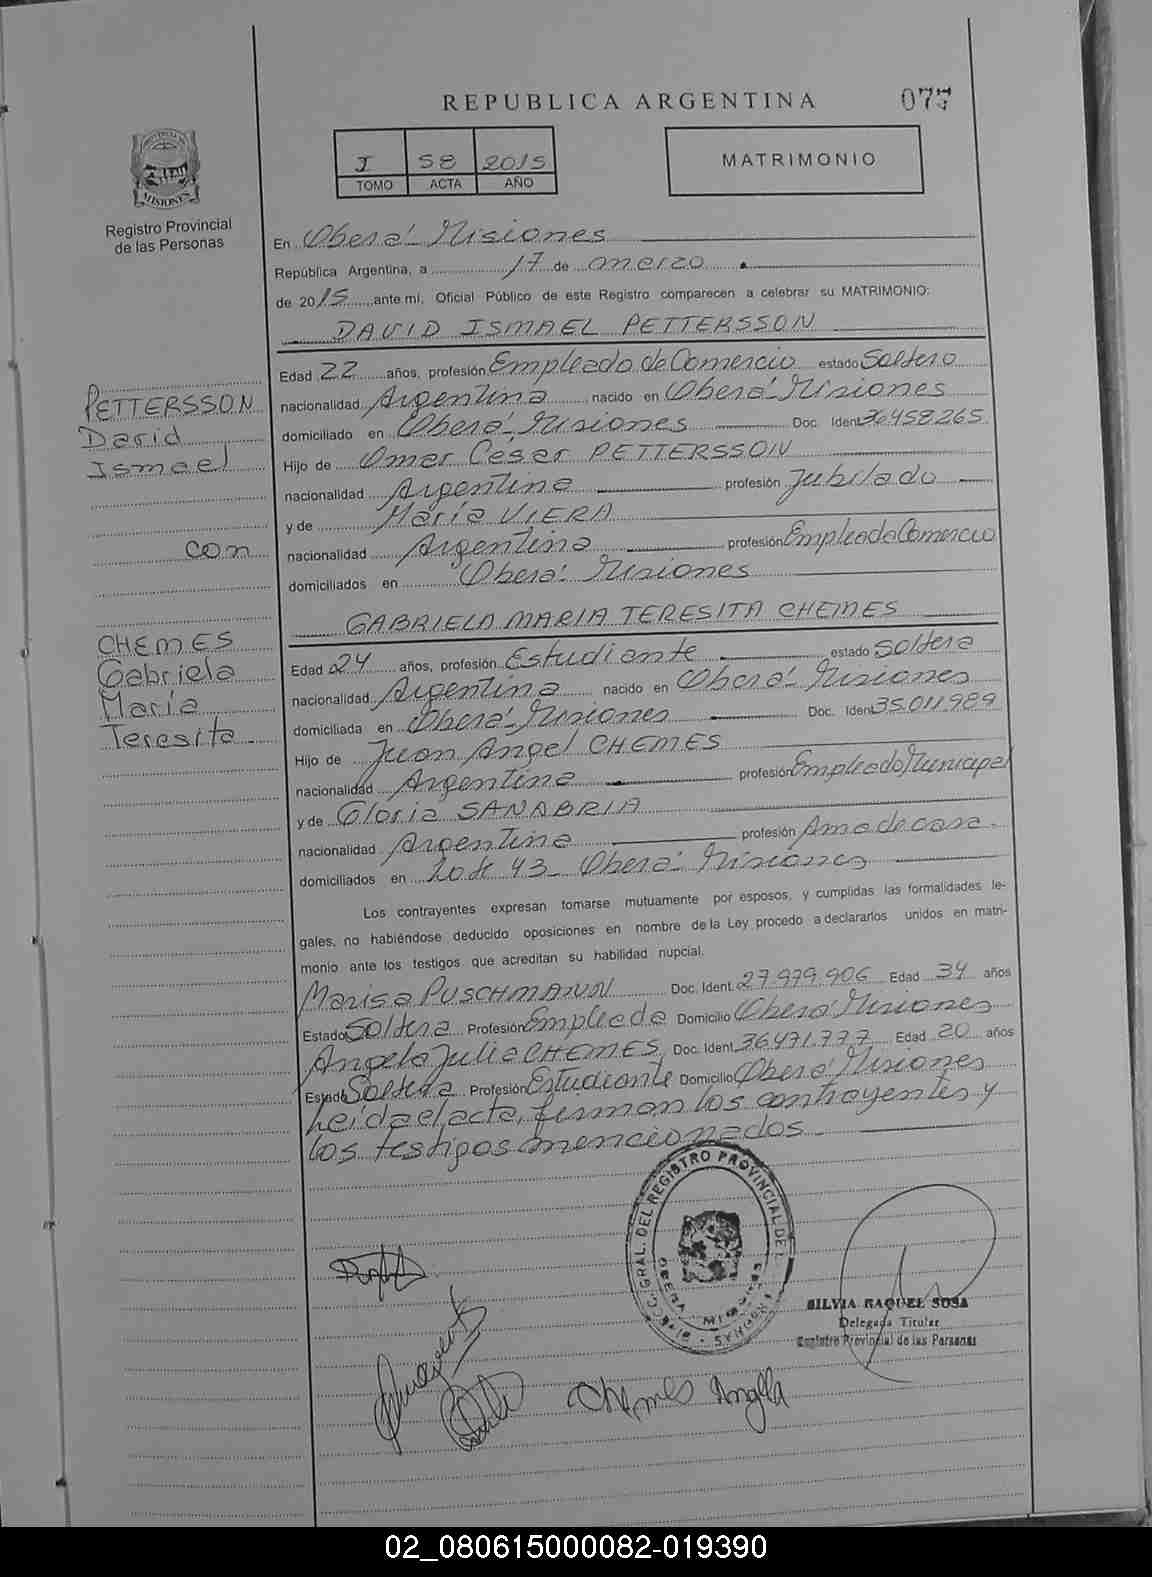 REPUBLICA ARGENTINA
077
PROVINCIA DE
MISIONES
Registro Provincial
de las Personas
I 58 2015
TOMO ACTA AÑO
MATRIMONIO
En Oberá - Misiones
República Argentina, a 17 de marzo
de 2015 ante mí, Oficial Público de este Registro comparecen a celebrar su MATRIMONIO:
DAVID ISMAEL PETTERSSON
PETTERSSON
David
Ismael
con
CHEMES
Gabriela
María
Teresita
Edad 22 años, profesión Empleado de Comercio estado Soltero
nacionalidad Argentina nacido en Oberá - Misiones
domiciliado en Oberá - Misiones Doc. Ident 36.458.265
Hijo de Omar César PETTERSSON
nacionalidad Argentina profesión Jubilado
y de María VIERA
nacionalidad Argentina profesión Empleada Comercio
domiciliados en Oberá - Misiones
GABRIELA MARIA TERESITA CHEMES
Edad 24 años, profesión Estudiante estado Soltera
nacionalidad Argentina nacido en Oberá - Misiones
domiciliada en Oberá - Misiones Doc. Ident 35.011.989
Hijo de Juan Angel CHEMES
nacionalidad Argentina profesión Empleado Municipal
y de Gloria SANABRIA
nacionalidad Argentina profesión Ama de casa
domiciliados en Lote 43 - Oberá - Misiones
Los contrayentes expresan tomarse mutuamente por esposos, y cumplidas las formalidades le-
gales, no habiéndose deducido oposiciones en nombre de la Ley procedo a declararlos unidos en matri-
monio ante los testigos que acreditan su habilidad nupcial.
Marisa PUSCHMANN Doc. Ident. 27.979.906 Edad 34 años
Estado Soltera Profesión Empleada Domicilio Oberá Misiones
Angela Julia CHEMES Doc. Ident 36.471.777 Edad 20 años
Estado Soltera Profesión Estudiante Domicilio Oberá Misiones
Leída el acta, firman los contrayentes y
los testigos mencionados
GRAL. DEL REGISTRO PROVINCIAL DE
OBERA MISIONES
SILVIA RAQUEL SOSA
Delegada Titular
Registro Provincial de las Personas
Chemes Angela
02_080615000082-019390